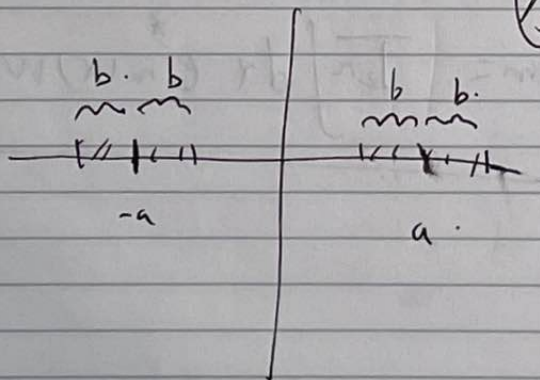 b. b b b.
-a a.